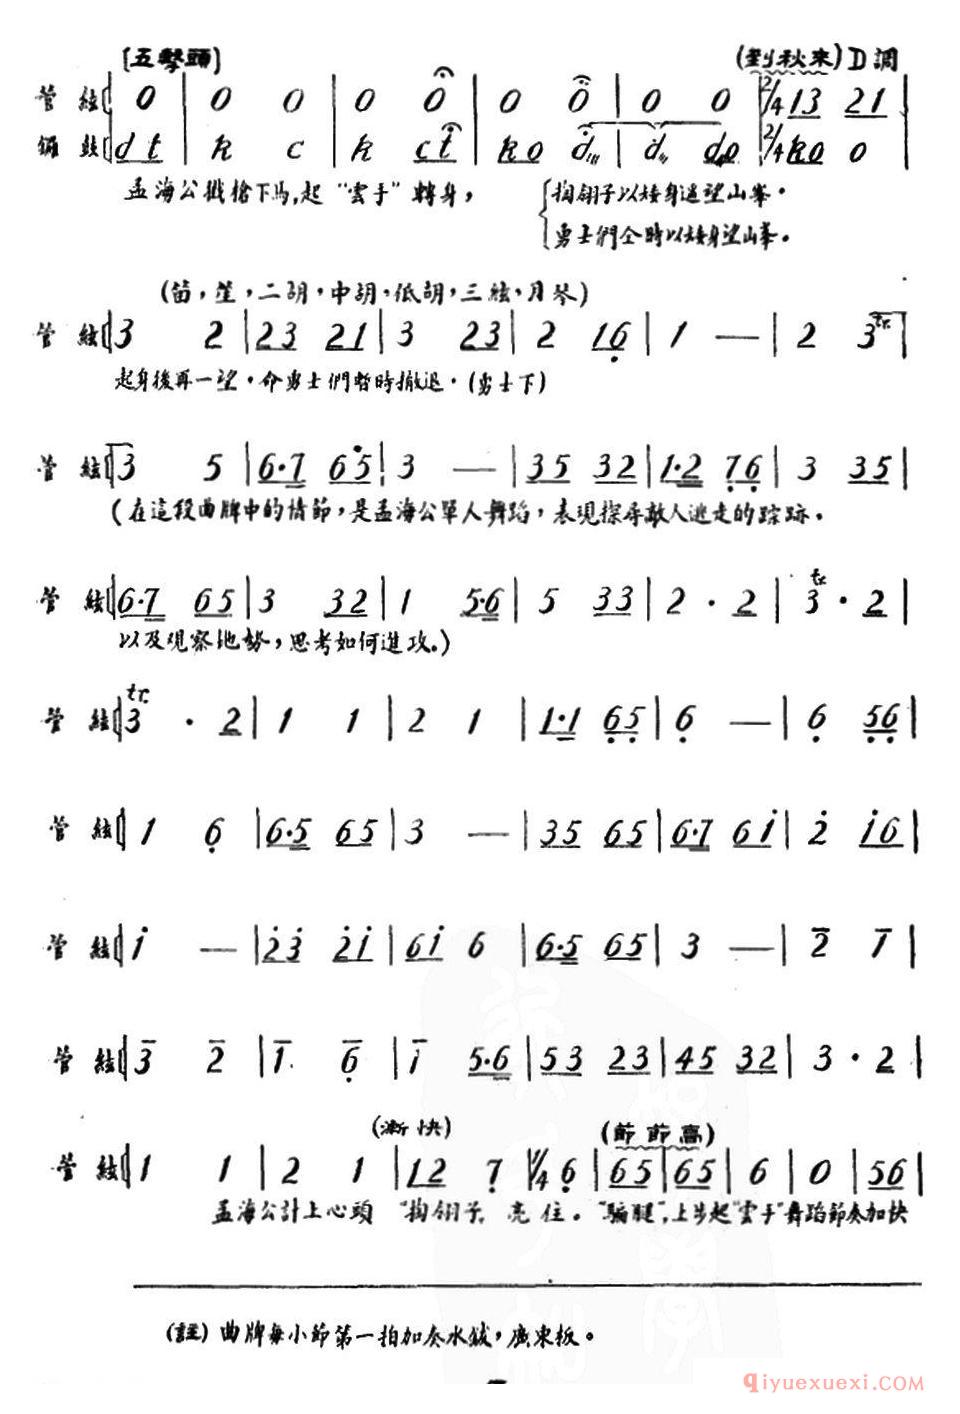 〔五擊頭〕 (到秋來) D調
管絃 0 | 0 0 | 0 0 | 0 0 | 0 0 | 2/4 13 21
鑼鼓 d t | k c | k ct | ko d | d do | 2/4 ko 0
孟海公戳槍下馬,起“雲手”轉身,
掏翎子以矮身遥望山峯。
勇士們仝時以矮身望山峯。
(笛,笙,二胡,中胡,低胡,三絃,月琴)
管絃 3 2 | 23 21 | 3 23 | 2 16 | 1 — | 2 3 tr.
起身後再一望,命勇士們暫時撤退。(勇士下)
管絃 3 5 | 6·7 65 | 3 — | 35 32 | 1·2 76 | 3 35 |
(在這段曲牌中的情節,是孟海公單人舞蹈,表現探尋敵人逃走的踪跡。
管絃 6·7 65 | 3 32 | 1 5·6 | 5 33 | 2 · 2 | tr 3 · 2 |
以及观察地勢,思考如何進攻。)
管絃 tr. 3 · 2 | 1 1 | 2 1 | 1·1 65 | 6 — | 6 56 |
管絃 1 6 | 6·5 65 | 3 — | 35 65 | 6·7 6i | 2 i6 |
管絃 i — | 23 2i | 6i 6 | 6·5 65 | 3 — | 2 1 |
管絃 3 2 | 1 6 | i 5·6 | 53 23 | 45 32 | 3 · 2 |
(漸快) (節節高)
管絃 1 1 | 2 1 | 12 7 | 1/4 6 | 65 | 65 | 6 | 0 | 56 |
孟海公計上心頭 “掏翎子”亮住。“騙腿”,上步起“雲手”舞蹈節奏加快
(註) 曲牌每小節第一拍加奏水鈸,廣東板。
qiyuexuexi.com